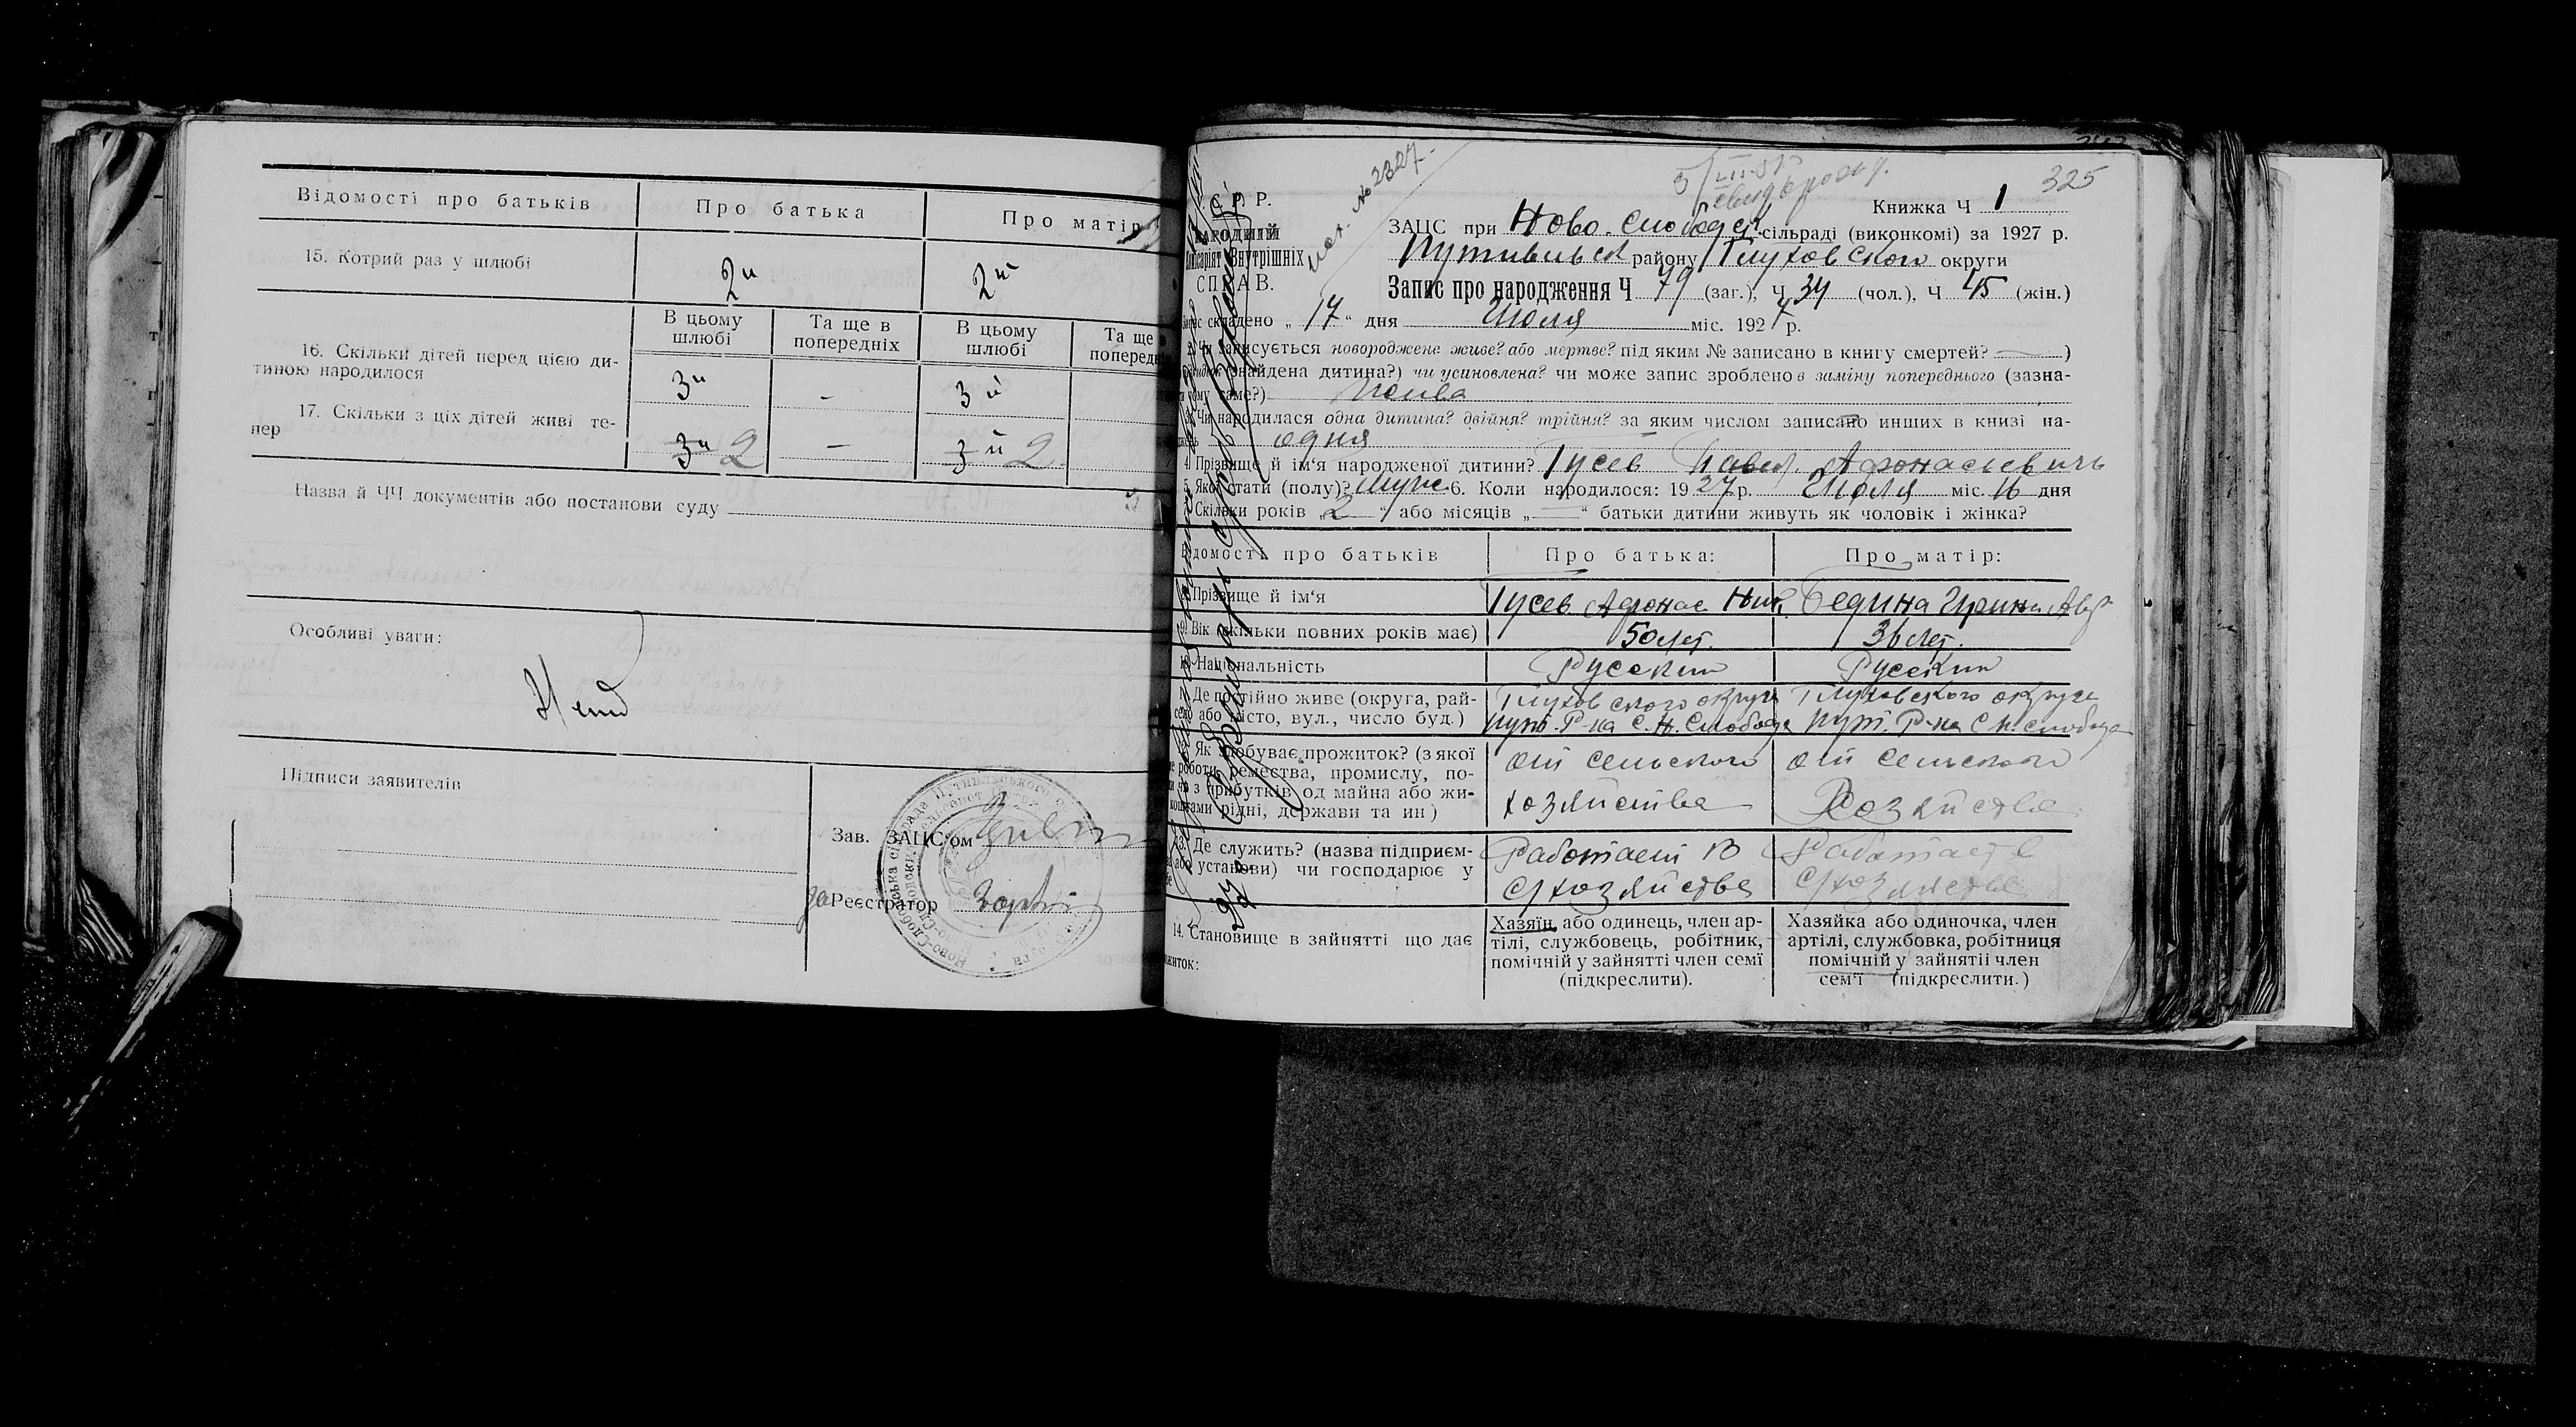 Відомості про батьків Про батька Про матір
15. Котрий раз у шлюбі 2й 2й
В цьому шлюбі Та ще в попередніх В цьому шлюбі Та ще попередн
16. Скільки дітей перед цією ди-
тиною народилося 3й - 3й
17. Скільки з ціх дітей живі те-
пер 3й 2 — 3й 2
Назва й ЧЧ документів або постанови суду
Особливі уваги:
Нет
Підписи заявителів
Зав. ЗАЦС'ом
за Реєстратор
325
№ 2327
С. Р. Р.
НАРОДНІЙ
Комісаріят Внутрішніх
СПРАВ.
Книжка Ч 1
ЗАЦС при Ново-Слободск сільраді (виконкомі) за 1927 р.
Путивльск району Глуховского округи
Запис про народження Ч 79 (заг.), Ч 34 (чол.), Ч 45 (жін.)
Запис складено „17“ дня Июля міс. 1927 р.
2. Чи записується новороджене живе? або мертве? під яким № записано в книгу смертей? —)
(знайдена дитина?) чи усиновлена? чи може запис зроблено в заміну попереднього (зазна-
чому саме?)
3. Чи народилася одна дитина? двійня? трійня? за яким числом записано инших в книзі на-
одня
4. Прізвище й ім'я народженої дитини? Гусев Павел Афонасьевичь
5. Якої стати (полу)? Муж 6. Коли народилося: 1927 р. Июля міс. 16 дня
7. Скільки років „2“ або місяців „—“ батьки дитини живуть як чоловік і жінка?
Відомості про батьків Про батька: Про матір:
8. Прізвище й ім'я Гусев Афонас Ник. Бедина Ирина Авр
9. Вік (скільки повних років має) 50 лет. 36 лет.
10. Національність Русский Русский
11. Де постійно живе (округа, рай-
село або місто, вул., число буд.)
Глуховского округи Пут. Р-на С. Н. Слобода
Глуховского округи Пут. Р-на С Н. Слобода
Як здобуває прожиток? (з якої
роботи, ремества, промислу, по-
чи з прибутків од майна або жи-
коштами рідні, держави та ин)
от сельского хозяйства
от сельского Хозяйства
13. Де служить? (назва підприєм-
або установи) чи господарює у
Работает в с/хозяйстве
Работает в с/хозяйстве
14. Становище в зайнятті що дає
житок:
Хазяїн, або одинець, член ар-
тілі, службовець, робітник,
помічній у зайнятті член семї
(підкреслити).
Хазяйка або одиночка, член
артілі, службовка, робітниця
помічній у зайнятії член
сем'ї (підкреслити.)